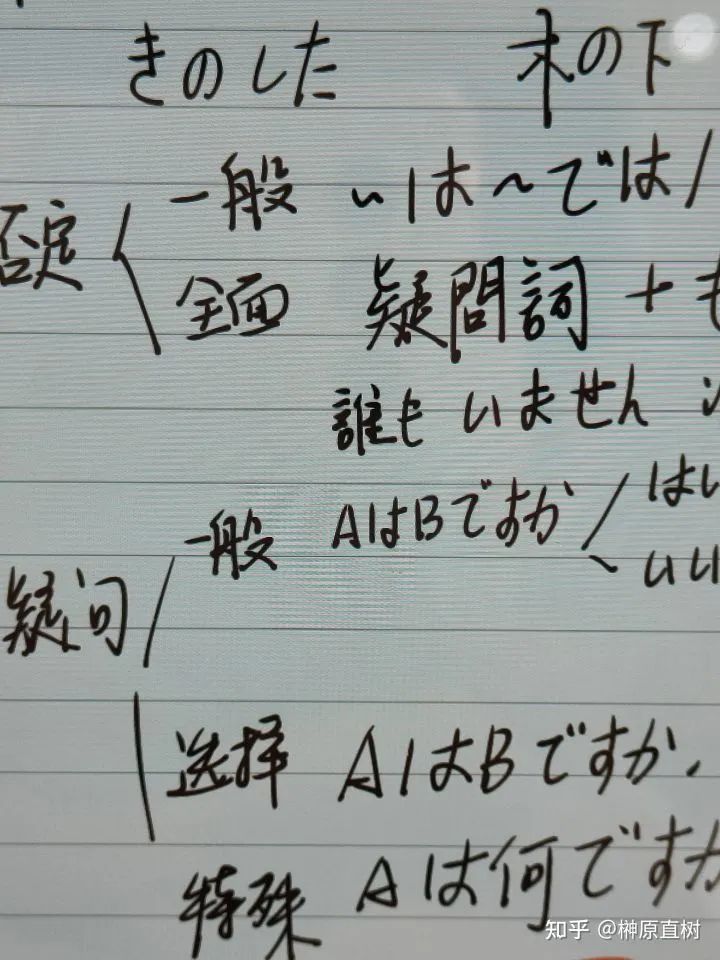 きのした 木の下
否定 一般 〜は〜では/
全面 疑問詞 + も
誰も いません
疑问 一般 AはBですか / はい
いい
选择 AはBですか、
特殊 Aは何ですか
知乎 @榊原直树